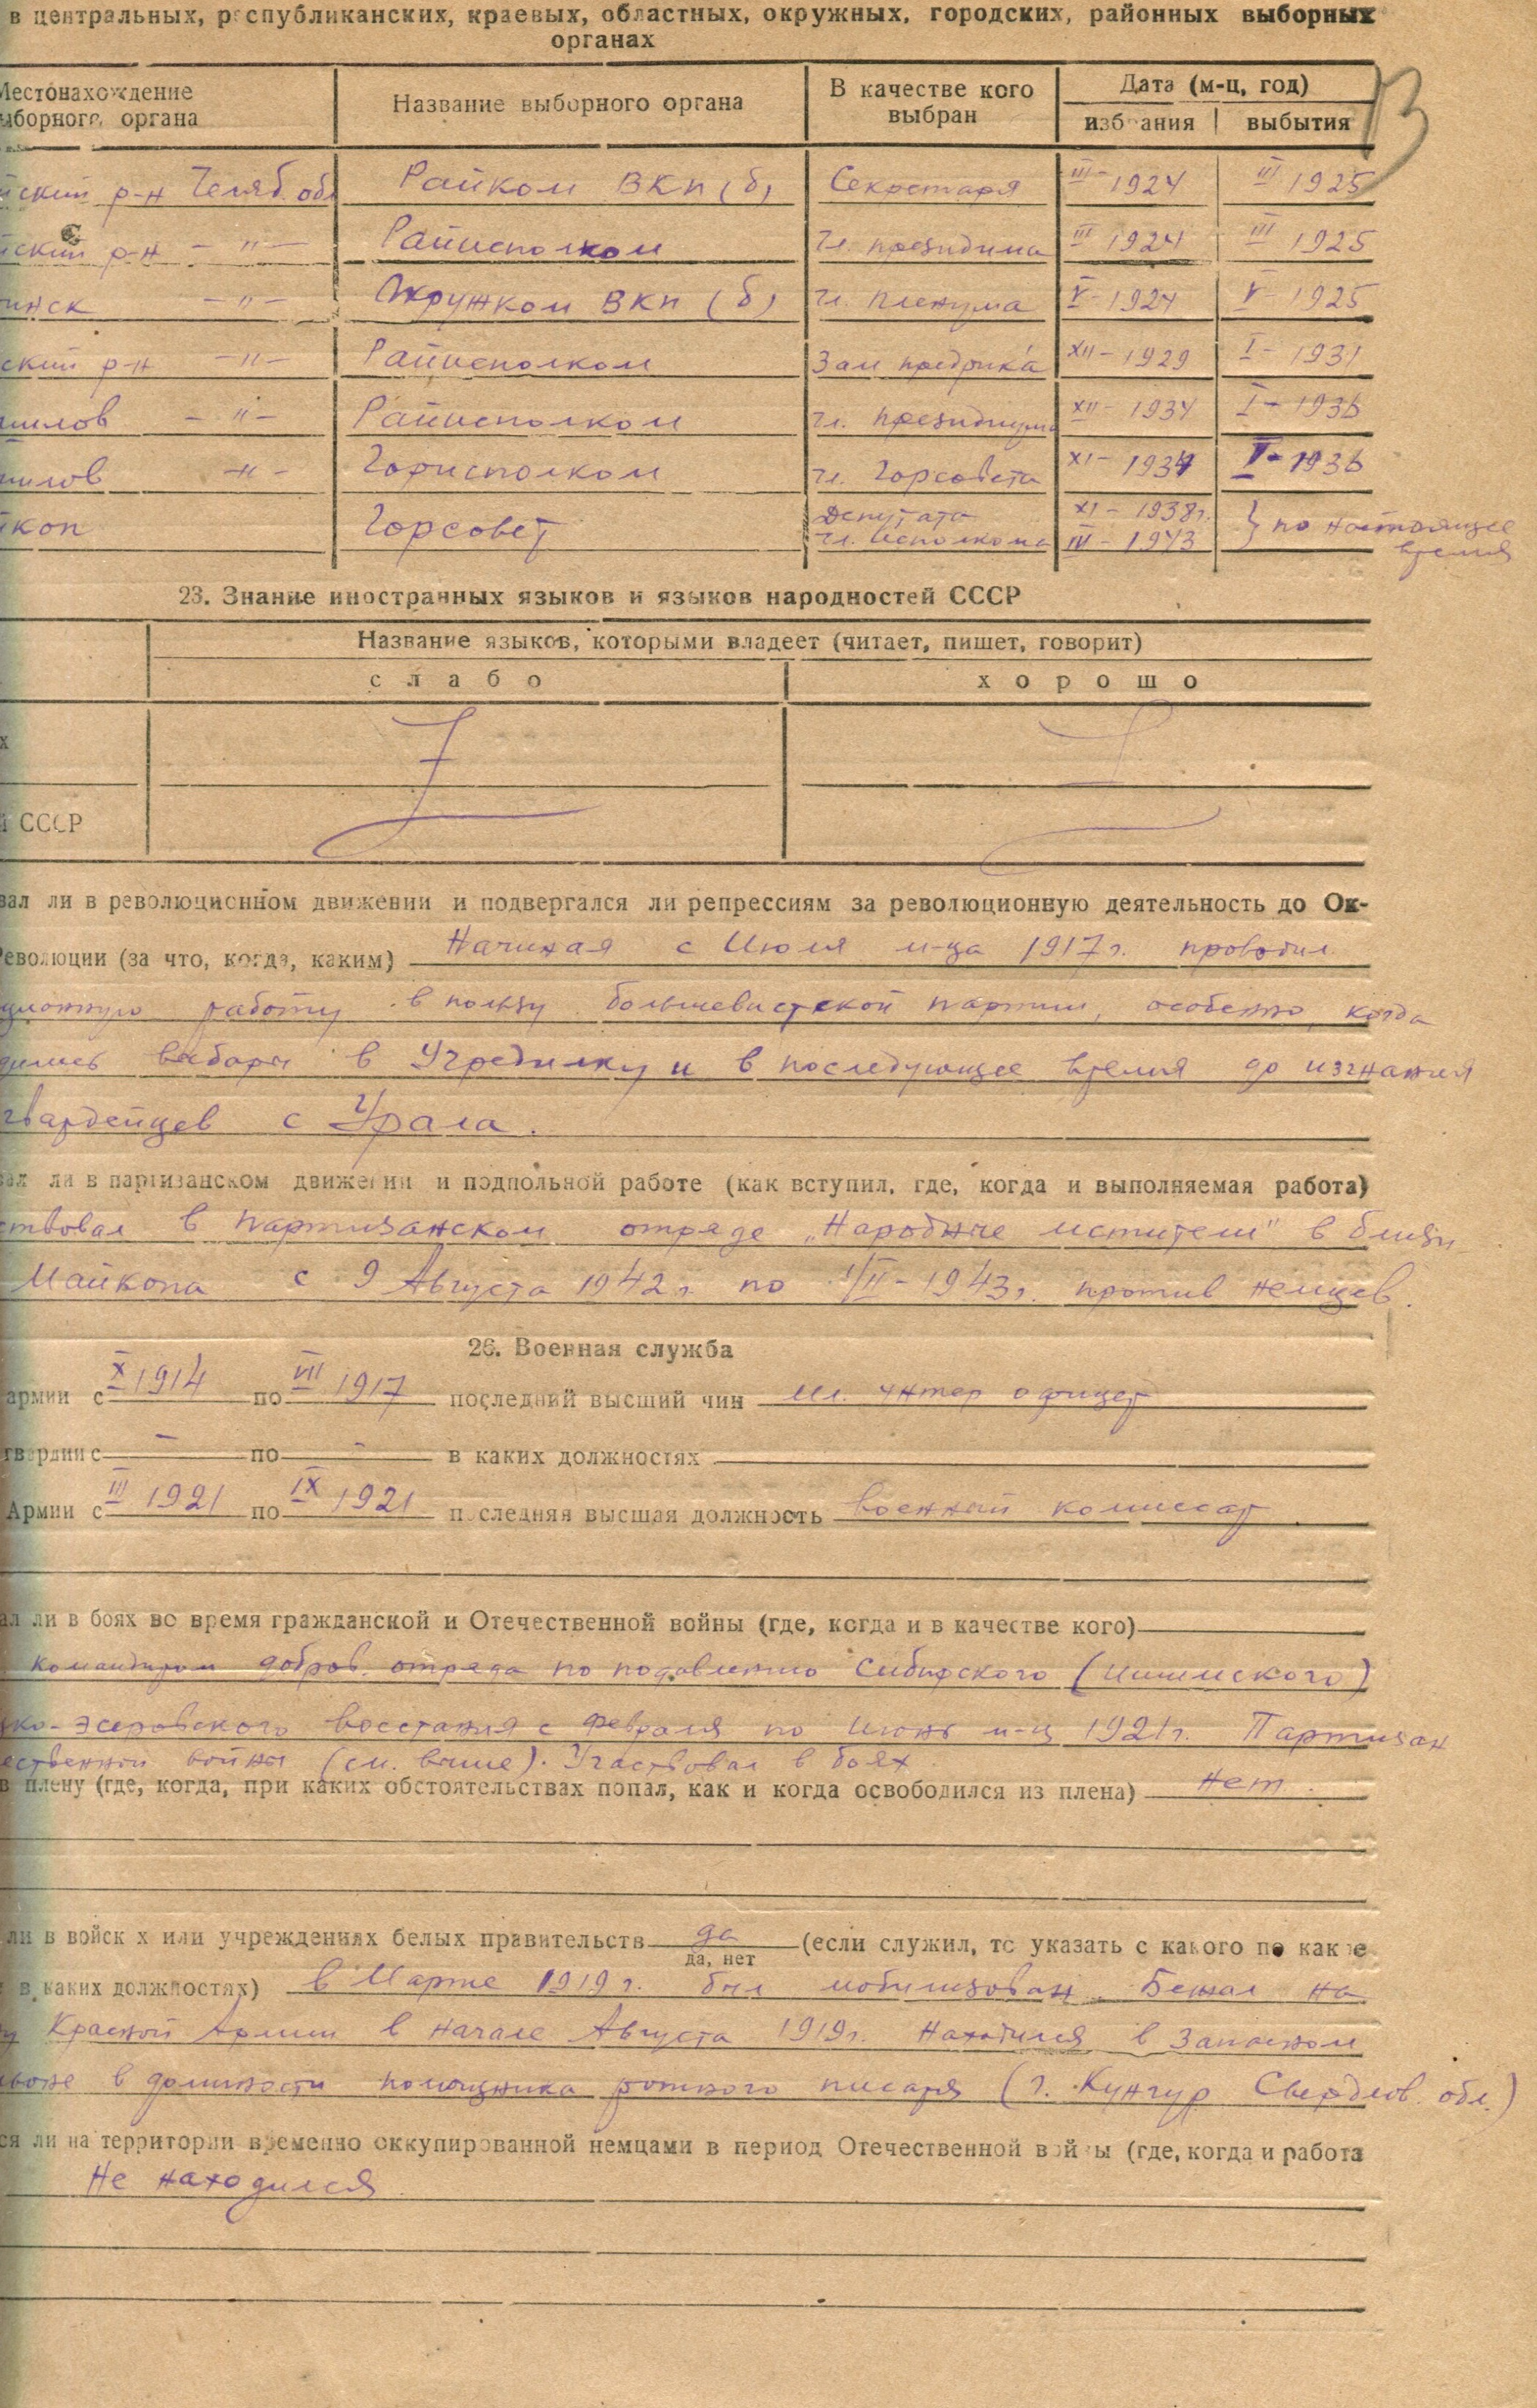 в центральных, республиканских, краевых, областных, окружных, городских, районных выборных
органах
Местонахождение
выборного органа
Название выборного органа
В качестве кого
выбран
Дата (м-ц, год)
избрания | выбытия
13
ский р-н Челяб. обл Райком ВКП(б) Секретаря III-1924 III 1925
ский р-н -"- Райисполком Чл. президиума III 1924 III 1925
инск -"- Окружком ВКП (б) Чл. пленума V-1924 V-1925
ский р-н -"- Райисполком Зам предрика XII-1929 I-1931
шилов -"- Райисполком Чл. президиума XII-1934 I-1936
шилов -"- Горисполком Чл. Горсовета XI-1934 V-1936
йкоп Горсовет Депутата XI-1938г. } по настоящее
чл. Исполкома IV-1943 время
23. Знание иностранных языков и языков народностей СССР
Название языков, которыми владеет (читает, пишет, говорит)
слабо хорошо
х
й СССР
вал ли в революционном движении и подвергался ли репрессиям за революционную деятельность до Ок-
Революции (за что, когда, каким) Начиная с Июля м-ца 1917г. проводил
ционную работу в пользу большевистской партии, особенно, когда
дились выборы в Учредилку и в последующее время до изгнания
гвардейцев с Урала.
вал ли в партизанском движении и подпольной работе (как вступил, где, когда и выполняемая работа)
ствовал в партизанском отряде „Народные мстители" в близи
Майкопа с 9 Августа 1942г. по 1/II-1943г. против немцев.
26. Военная служба
армии с X 1914 по VII 1917 последний высший чин мл. унтер офицер
гвардии с - по - в каких должностях
Армии с III 1921 по IX 1921 последняя высшая должность военный комиссар
ал ли в боях во время гражданской и Отечественной войны (где, когда и в качестве кого)
командиром добров. отряда по подавлению Сибирского (Ишимского)
ко-эсеровского восстания с февраля по Июнь м-ц 1921г. Партизан
ественной войны (см. выше). Участвовал в боях.
в плену (где, когда, при каких обстоятельствах попал, как и когда освободился из плена) нет.
ли в войск х или учреждениях белых правительств да (если служил, то указать с какого по какое
да, нет
в каких должностях) в Марте 1919г. был мобилизован. Бежал на
у Красной Армии в начале Августа 1919г. Находился в Запасном
ьоне в должности помощника ротного писаря (г. Кунгур Свердлов. обл.)
ся ли на территории временно оккупированной немцами в период Отечественной войны (где, когда и работа
Не находился.